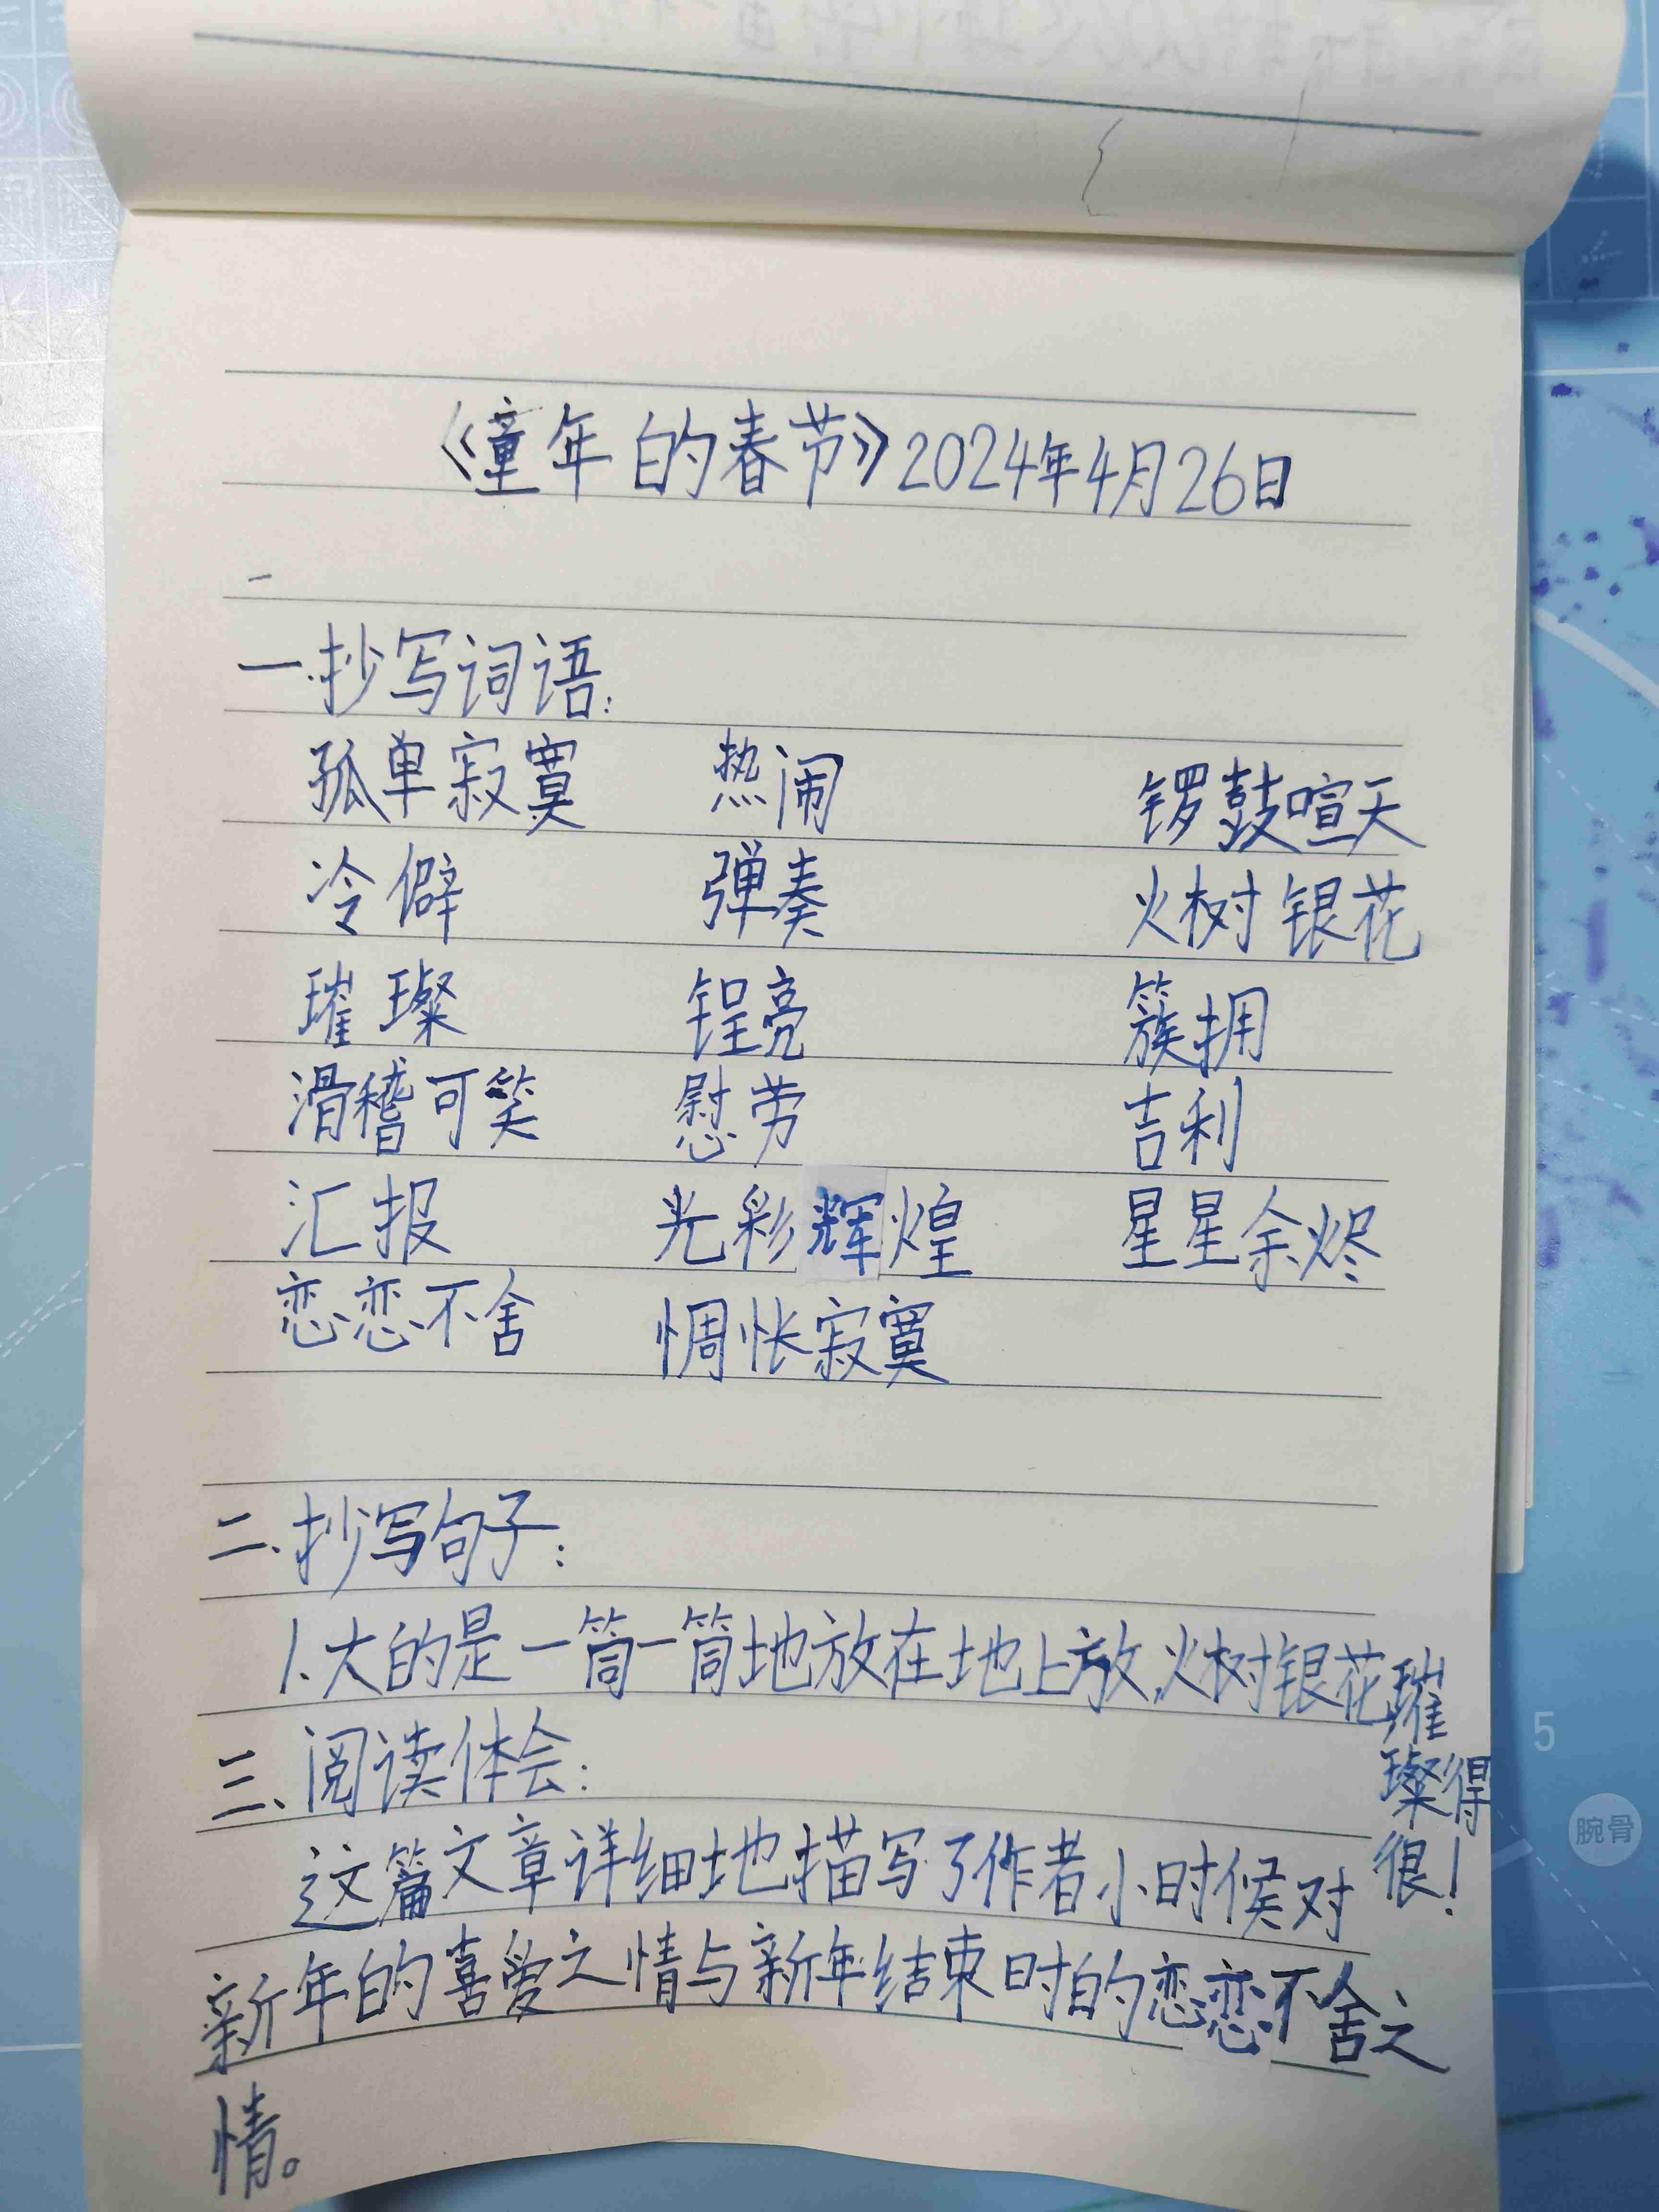 《童年的春节》2024年4月26日
一
一.抄写词语:
孤单寂寞 热闹 锣鼓喧天
冷僻 弹奏 火树银花
璀璨 锃亮 簇拥
滑稽可笑 慰劳 吉利
汇报 光彩辉煌 星星余烬
恋恋不舍 惆怅寂寞
二、抄写句子:
1.大的是一筒一筒地放在地上放,火树银花璀
璨得
很!
三、阅读体会:
这篇文章详细地描写了作者小时候对
新年的喜爱之情与新年结束时的恋恋不舍之
情。
5
腕骨